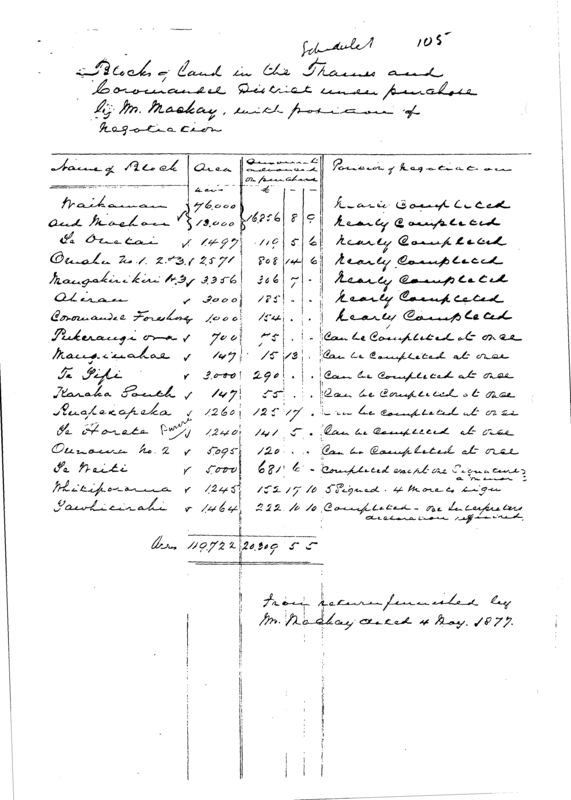 Schedule 1 105
Blocks of Land in the Thames and
Coromandel District under purchase
by Mr. Mackay, with position of
Negotiation
Name of Block Area Amount advanced on purchase Position of Negotiation
acres £ - -
Waikawau 76,000 Nearly Completed
and Moehau 13,000 16856 8 9 Nearly Completed
Te Ouetai 1497 119 5 6 Nearly Completed
Omahu No. 1. 2 & 3 2571 808 14 6 Nearly Completed
Maungakirikiri No 3 3356 306 7 . Nearly Completed
Ahirau 3000 185 . . Nearly Completed
Coromandel Foreshore 1,000 154 . . Nearly Completed
Pukerangi 700 75 . . Can be Completed at once
147 15 13 . Can be Completed at once
Te Pipi 3,000 290 . . Can be Completed at once
Karaka South 147 55 . . Can be Completed at once
Ruapekapeka 1260 125 17 . Can be Completed at once
Te Horete 1240 141 5 . Can be Completed at once
No. 2 5095 120 . . Can be Completed at once
Te Weiti 5000 681 6 - Completed except one Signature
a minor
Whitiporoma 1,245 152 17 10 5 Signed. 4 More to sign
Tawhitirahi 1,464 222 10 10 Completed - one Interpreters
declaration required
Acres 119,722 20,309 5 5
From return furnished by
Mr. Mackay dated 4 May. 1877.